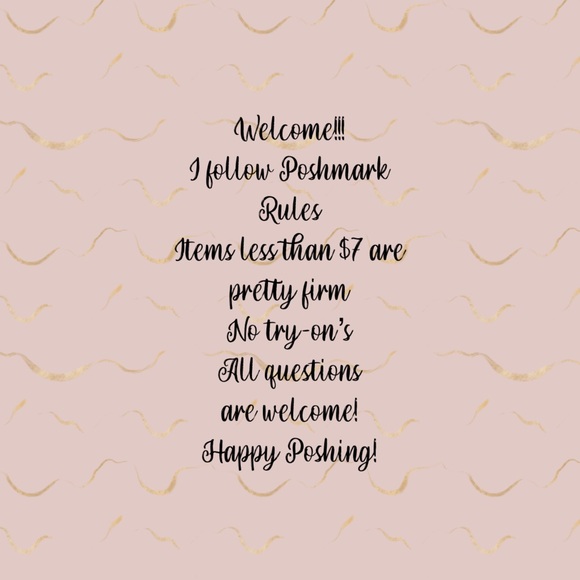 Welcome!!!
I follow Poshmark
Rules
Items less than $7 are
pretty firm
No try-on's
All questions
are welcome!
Happy Poshing!